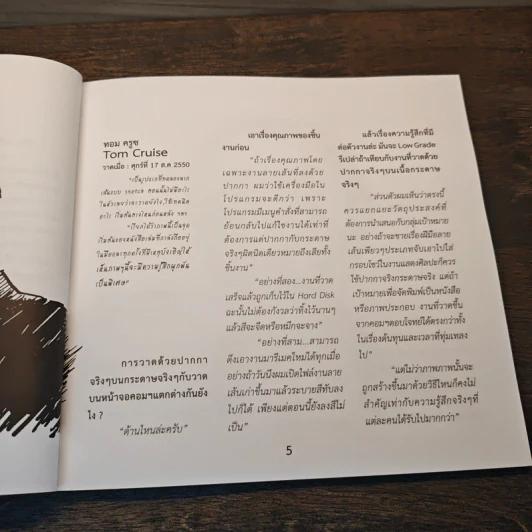 ทอม ครูซ
Tom Cruise
วาดเมื่อ : ศุกร์ที่ 17 ต.ค 2550
การวาดด้วยปากกา
จริงๆบนกระดาษจริงๆกับวาด
บนหน้าจอคอมฯแตกต่างกันยัง
ไง ?
"ด้านไหนล่ะครับ"
เอาเรื่องคุณภาพของชิ้น
งานก่อน
"ถ้าเรื่องคุณภาพโดย
เฉพาะงานลายเส้นที่ลงด้วย
ปากกา ผมว่าใช้เครื่องมือใน
โปรแกรมจะดีกว่า เพราะ
โปรแกรมมีเมนูคำสั่งที่สามารถ
ย้อนกลับไปแก้ไขงานได้เท่าที่
ต้องการแต่ปากกากับกระดาษ
จริงๆผิดนิดเดียวหมายถึงเสียทั้ง
ชิ้นงาน"
"อย่างที่สอง...งานที่วาด
เสร็จแล้วถูกเก็บไว้ใน Hard Disk
ฉะนั้นไม่ต้องกังวลว่าทิ้งไว้นานๆ
แล้วสีจะซีดหรือหมึกจะจาง"
"อย่างที่สาม...สามารถ
ดึงเอางานมารีเมคใหม่ได้ทุกเมื่อ
อย่างถ้าวันนึงผมเปิดไฟล์งานลาย
เส้นเก่าขึ้นมาแล้วระบายสีทับลง
ไปก็ได้ เพียงแต่ตอนนี้ยังลงสีไม่
เป็น"
แล้วเรื่องความรู้สึกที่มี
ต่อตัวงานล่ะ มันจะ Low Grade
รึเปล่าถ้าเทียบกับงานที่วาดด้วย
ปากกาจริงๆบนเนื้อกระดาษ
จริงๆ
"ส่วนตัวผมเห็นว่าตรงนี้
ควรแยกแยะวัตถุประสงค์ที่
ต้องการนำเสนอกับกลุ่มเป้าหมาย
นะ อย่างถ้าจะขายเรื่องฝีมือลาย
เส้นเพียวๆประเภทจับเอาไปใส่
กรอบโชว์ในงานแสดงศิลปะก็ควร
ใช้ปากกาจริงกระดาษจริง แต่ถ้า
เป้าหมายเพื่อจัดพิมพ์เป็นหนังสือ
หรือภาพประกอบ งานที่วาดขึ้น
จากคอมฯตอบโจทย์ได้ตรงกว่าทั้ง
ในเรื่องต้นทุนและเวลาที่ทุ่มเทลง
ไป"
"แต่ไม่ว่าภาพภาพนั้นจะ
ถูกสร้างขึ้นมาด้วยวิธีไหนก็คงไม่
สำคัญเท่ากับความรู้สึกจริงๆที่
แต่ละคนได้รับไปมากกว่า"
5